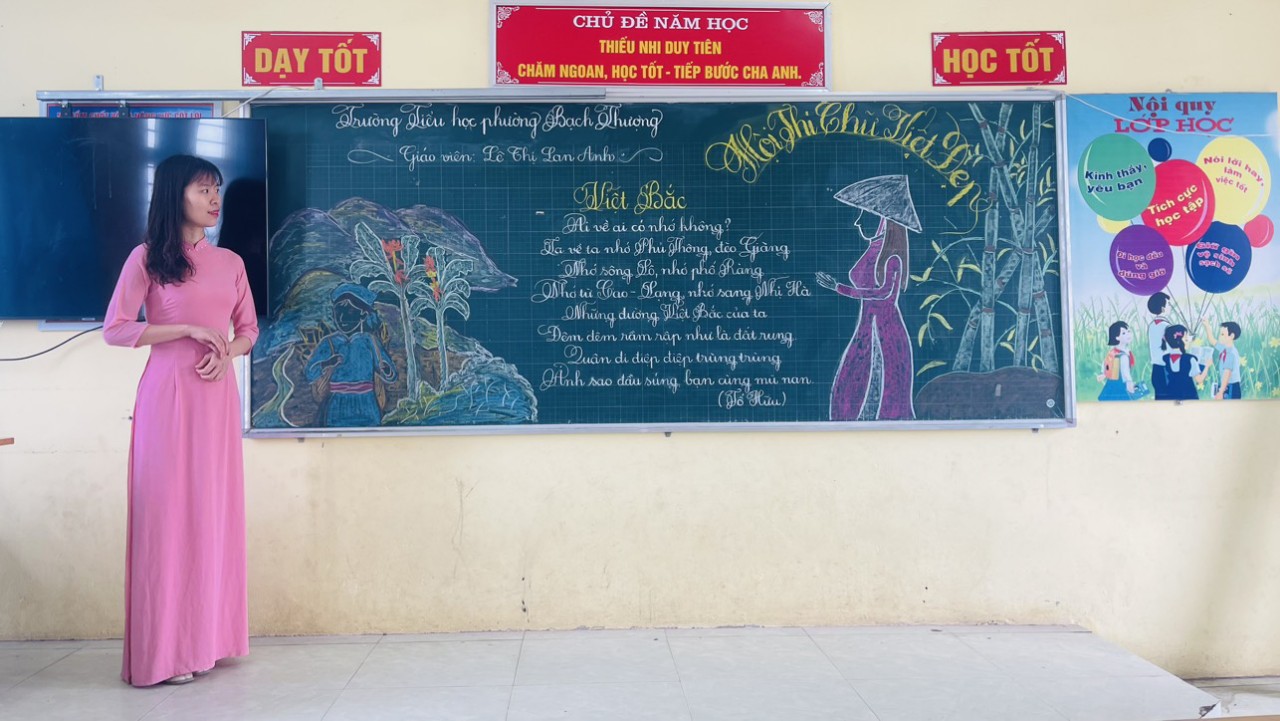 CHỦ ĐỀ NĂM HỌC
THIẾU NHI DUY TIÊN
CHĂM NGOAN, HỌC TỐT - TIẾP BƯỚC CHA ANH.
DẠY TỐT
HỌC TỐT
Trường Tiểu học phường Bạch Thượng
Giáo viên: Lê Thị Lan Anh
Hội Thi Chữ Việt Đẹp
Việt Bắc
Ai về ai có nhớ không?
Ta về ta nhớ Phủ Thông, đèo Giàng
Nhớ sông Lô, nhớ phố Ràng
Nhớ từ Cao - Lạng, nhớ sang Nhị Hà
Những đường Việt Bắc của ta
Đêm đêm rầm rập như là đất rung
Quân đi điệp điệp trùng trùng
Ánh sao đầu súng, bạn cùng mũ nan
(Tố Hữu)
Nội quy
LỚP HỌC
Kính thầy,
yêu bạn
Nói lời hay,
làm
việc tốt
Tích cực
học tập
Đi học đều
và
đúng giờ
Giữ gìn
vệ sinh
sạch sẽ